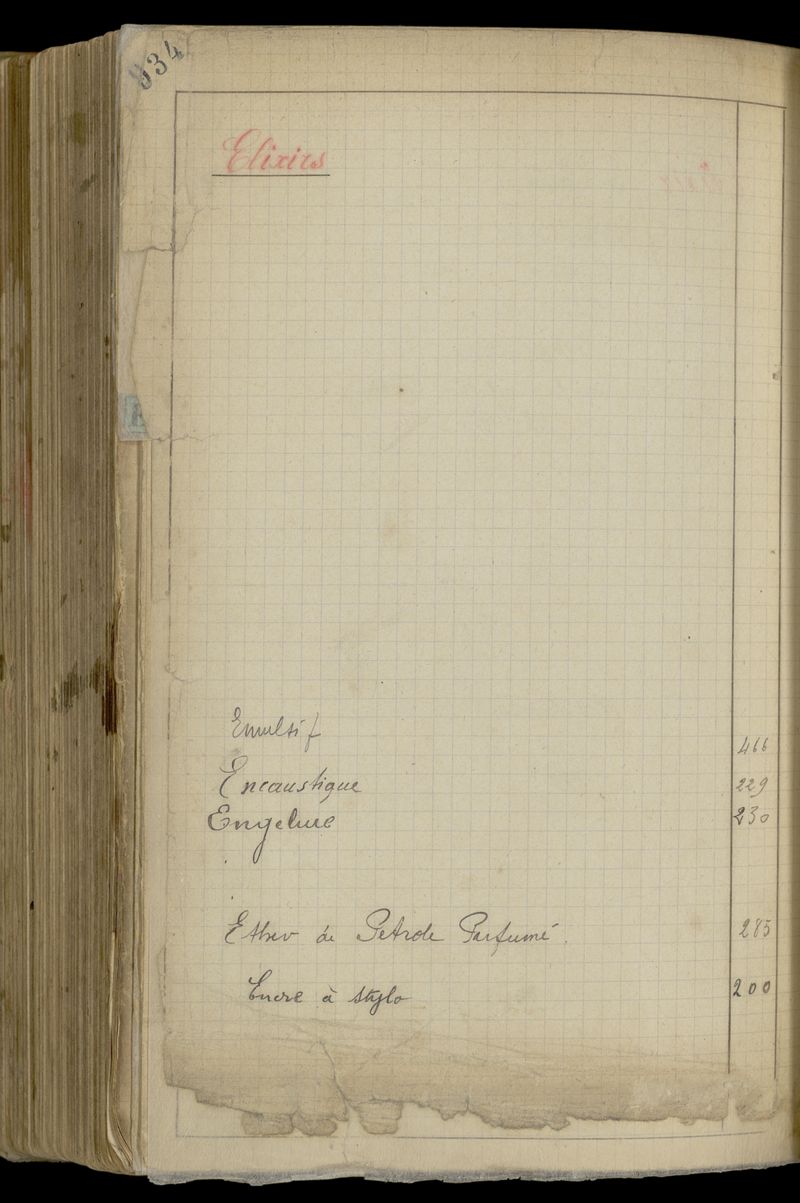 934
Elixirs
Emulsif 466
Encaustique 229
Engelure 230
Ether de Petrole Parfumé. 285
Encre à stylo 200